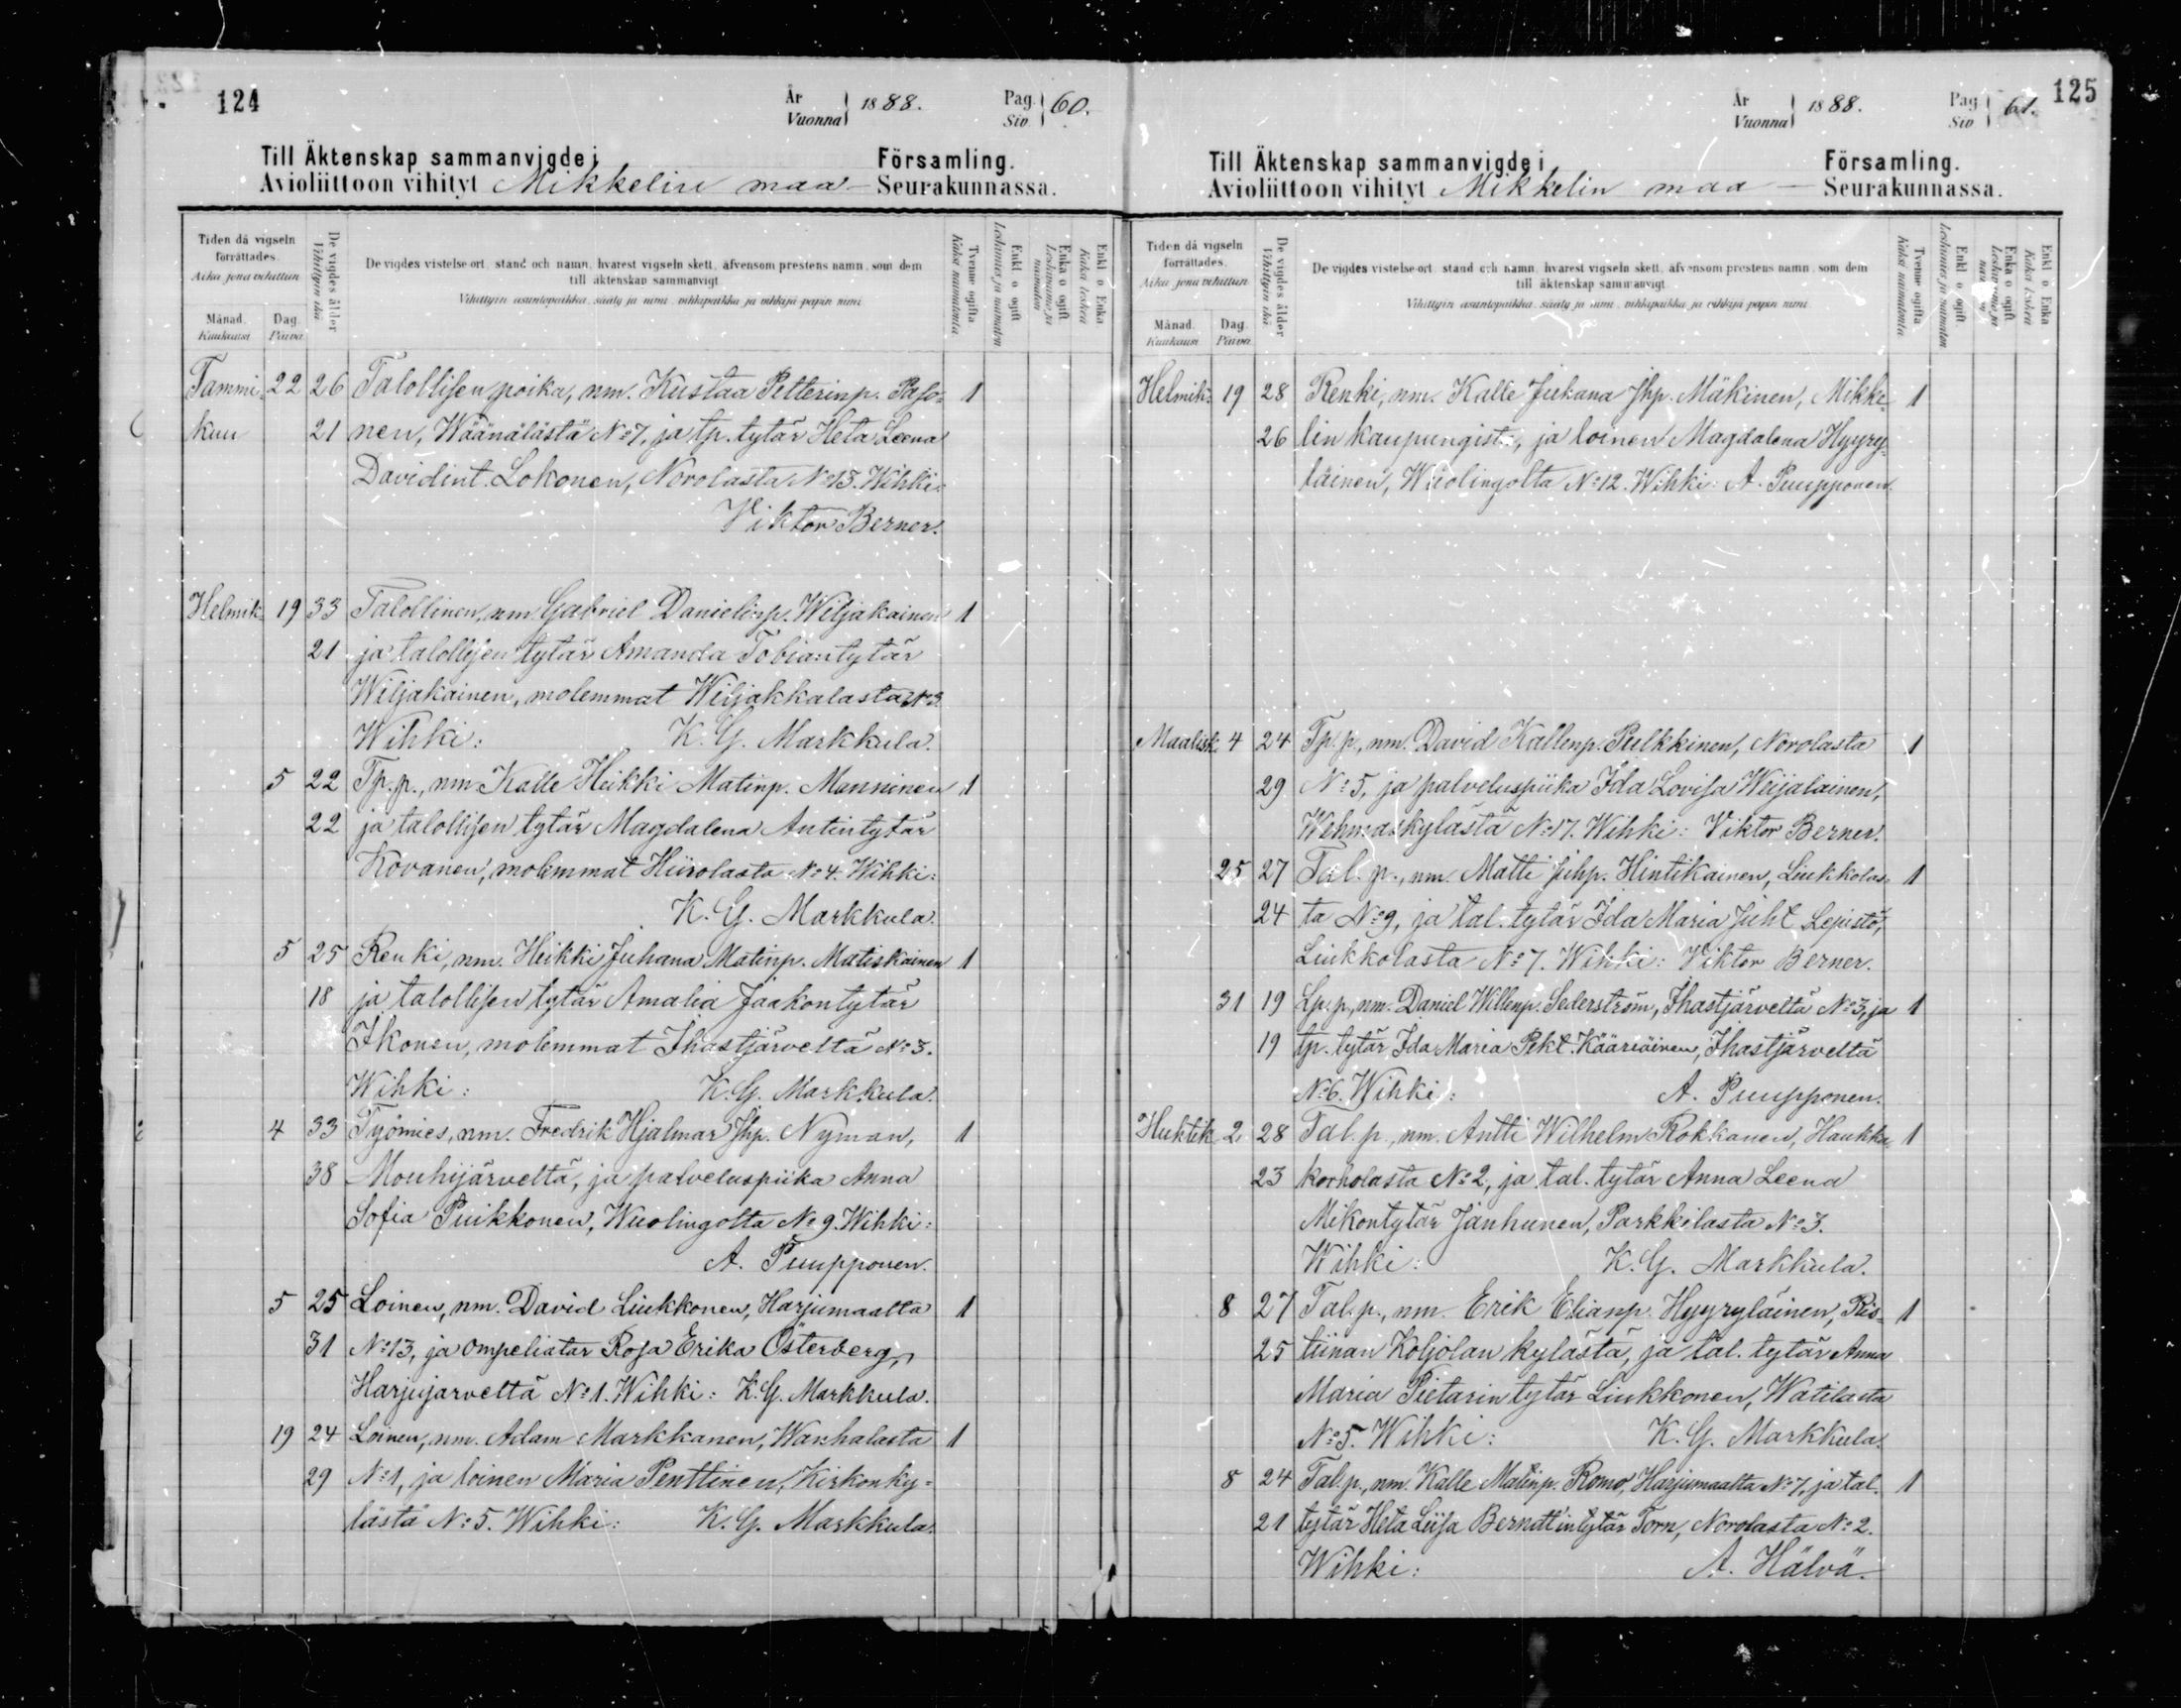 124
År Vuonna 1888. Pag. Siv. 60.
Till Äktenskap sammanvigde i Församling.
Avioliittoon vihityt Mikkelin maa- Seurakunnassa.
Tiden då vigseln förrättades. Aika jona vihittiin
Månad. Kuukausi Dag. Päivä
De vigdes ålder Vihittyin ikä
De vigdes vistelseort, stånd och namn, hvarest vigseln skett, äfvensom prestens namn, som dem
till äktenskap sammanvigt.
Vihittyin asuntopaikka, sääty ja nimi, vihkipaikka ja vihkijä-papin nimi.
Tvenne ogifta Kaksi naimatonta
Enkl. o. ogift Leskimies ja naimaton
Enka o ogift Leskivaimo ja naimaton
Enkl. o Enka Kaksi leskeä
Tammi- 22 26 Talollisen poika, nm. Kustaa Petterinp. Paso- 1
kuu 21 nen, Wäänälästä No 7, ja tp. tytär Heta Leena
Davidint. Lokonen, Norolasta No 13. Wihki:
Viktor Berner.
Helmik. 19 33 Talollinen, nm. Gabriel Danielinp. Wiljakainen 1
21 ja talollisen tytär Amanda Tobiantytär
Wiljakainen, molemmat Wiljakkalasta No 3
Wihki: K. G. Markkula.
5 22 Tp. p., nm. Kalle Heikki Matinp. Manninen 1
22 ja talollisen tytär Magdalena Antintytär
Kovanen, molemmat Hiirolasta No 4. Wihki:
K. G. Markkula.
5 25 Renki, nm. Heikki Juhana Matinp. Matiskainen 1
18 ja talollisen tytär Amalia Jaakontytär
Ikonen, molemmat Ihastjärveltä No 3.
Wihki: K. G. Markkula.
4 33 Työmies, nm. Fredrik Hjalmar Jhp. Nyman, 1
38 Mouhijärveltä, ja palveluspiika Anna
Sofia Puikkonen, Wuolingolta No 9. Wihki:
A. Puupponen.
5 25 Loinen, nm. David Liukkonen, Harjumaalta 1
31 No 13, ja ompeliatar Rosa Erika Österberg,
Harjujarveltä No 1. Wihki: K. G. Markkula.
19 24 Loinen, nm. Adam Markkanen, Wanhalasta 1
29 No 1, ja loinen Maria Penttinen, Kirkonky-
lästä No 5. Wihki: K. G. Markkula.
125
År Vuonna 1888. Pag Siv 61.
Till Äktenskap sammanvigde i Församling.
Avioliittoon vihityt Mikkelin maa- Seurakunnassa.
Tiden då vigseln förrättades. Aika jona vihittiin
Månad. Kuukausi Dag. Päivä
De vigdes ålder Vihittyin ikä
De vigdes vistelseort, stånd och namn, hvarest vigseln skett, äfvensom prestens namn, som dem
till äktenskap sammanvigt.
Vihittyin asuntopaikka, sääty ja nimi, vihkipaikka ja vihkijä-papin nimi.
Tvenne ogifta Kaksi naimatonta
Enkl. o. ogift Leskimies ja naimaton
Enka o ogift Leskivaimo ja
Enkl. o Enka Kaksi leskeä
Helmik: 19 28 Renki, nm. Kalle Juhana Jhp. Mäkinen, Mikke- 1
26 lin kaupungista, ja loinen Magdalena Hyyry-
läinen, Wuolingolta No 12. Wihki: A. Puupponen.
Maalisk: 4 24 Tp. p., nm. David Kallenp. Pulkkinen, Norolasta 1
29 No 5, ja palveluspiika Ida Lovisa Weijalainen,
Wehmaskylästä No 17. Wihki: Viktor Berner.
25 27 Tal. p., nm. Matti Juhp. Hintikainen, Liukkolas- 1
24 ta No 9, ja tal. tytär Ida Maria Juh.t. Lepistö,
Liukkolasta No 7. Wihki: Viktor Berner.
31 19 Lp. p., nm. Daniel Willenp. Sederström, Ihastjärveltä No 3, ja 1
19 tp. tytär Ida Maria Pekt. Kääriäinen, Ihastjärveltä
No 6. Wihki: A. Puupponen.
Huhtik. 2 28 Tal. p., nm. Antti Wilhelm Rokkanen, Haukka- 1
23 korholasta No 2, ja tal. tytär Anna Leena
Mikontytär Janhunen, Parkkilasta No 3.
Wihki: K. G. Markkula.
8 27 Tal. p., nm. Erik Elianp. Hyyryläinen, Ris- 1
25 tiinan Koljolan kylästä, ja tal. tytär Anna
Maria Pietarintytär Liukkonen, Watilasta
No 5. Wihki: K. G. Markkula.
8 24 Tal. p., nm. Kalle Matinp. Romo, Harjumaalta No 7, ja tal. 1
21 tytär Heta Liisa Bernattintytär Torn, Norolasta No 2.
Wihki: A. Hälvä.